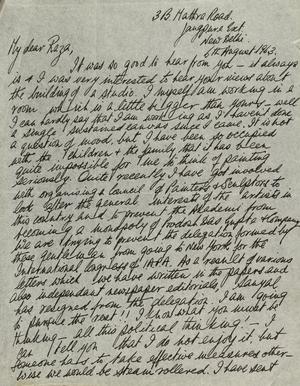 3B Mathra Road.
Jangpura Ext.
New Delhi.
6th August 1963.
My dear Raza,
It was so good to hear from you – it always
is & I was very interested to hear your views about
the building of a studio. I myself am working in a
room which is a little bigger than yours – well
I can hardly say that I am working as I haven't done
a single sustained canvas since I came. It is not
a question of mood, but I have been so occupied
with the children & the family that it has been
quite impossible for me to think of painting
seriously. Quite recently I have got involved
with organising a Council of Painters & Sculptors to
look after the general interests of the artists in
this country and to prevent the Academy from
becoming a monopoly of Prodosh Das Gupta & Company
We are trying to prevent the delegation formed by
these gentleman from going to New York for the
International Congress of IAPA. As a result of various
letters which we have written in the papers and
also independent newspaper editorials! Sanyal
has resigned from the delegation. I am going
to pursue the rest!! I know what you must be
thinking – all this political thinking! – I
can tell you that I do not enjoy it, but
someone has to take effective measures other-
wise we would be steam rollered. I have sent